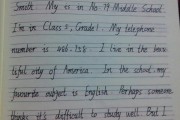 Smith. My is in No.79 Middle School.
I'm in Class 5, Grade 1. My telephone
number is I live in the beau-
tiful city of America. In the school my
favourite subject is English. Perhaps someone
thinks it's difficult to study well. But I